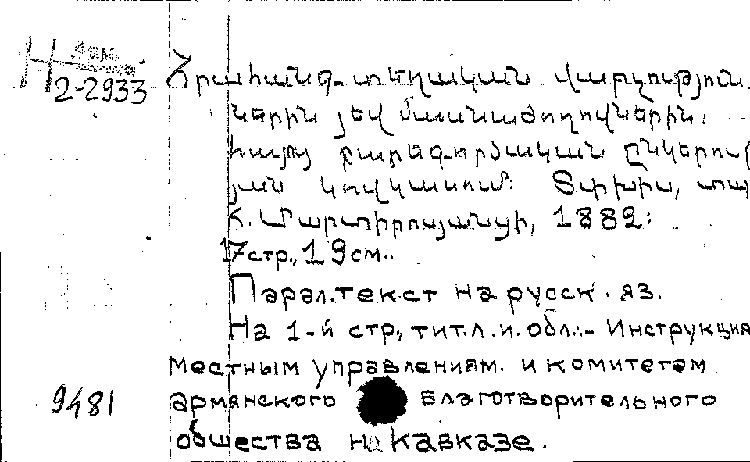 Н 2-2933
Հրահանգ տեղական վարչություն
ներին յեվ մասնաժողովներին.
հայոց բարեգործական ընկերու
յան կովկասում: Տփխիս, տպ
Մարտիրոսյանցի, 1882:
17стр., 19см..
Парал.текст на русск. яз.
На 1-й стр, тит.л.и.обл.- Инструкция
местным управлениям. и комитетам
9481 армянского благотворительного
общества на Кавказе.